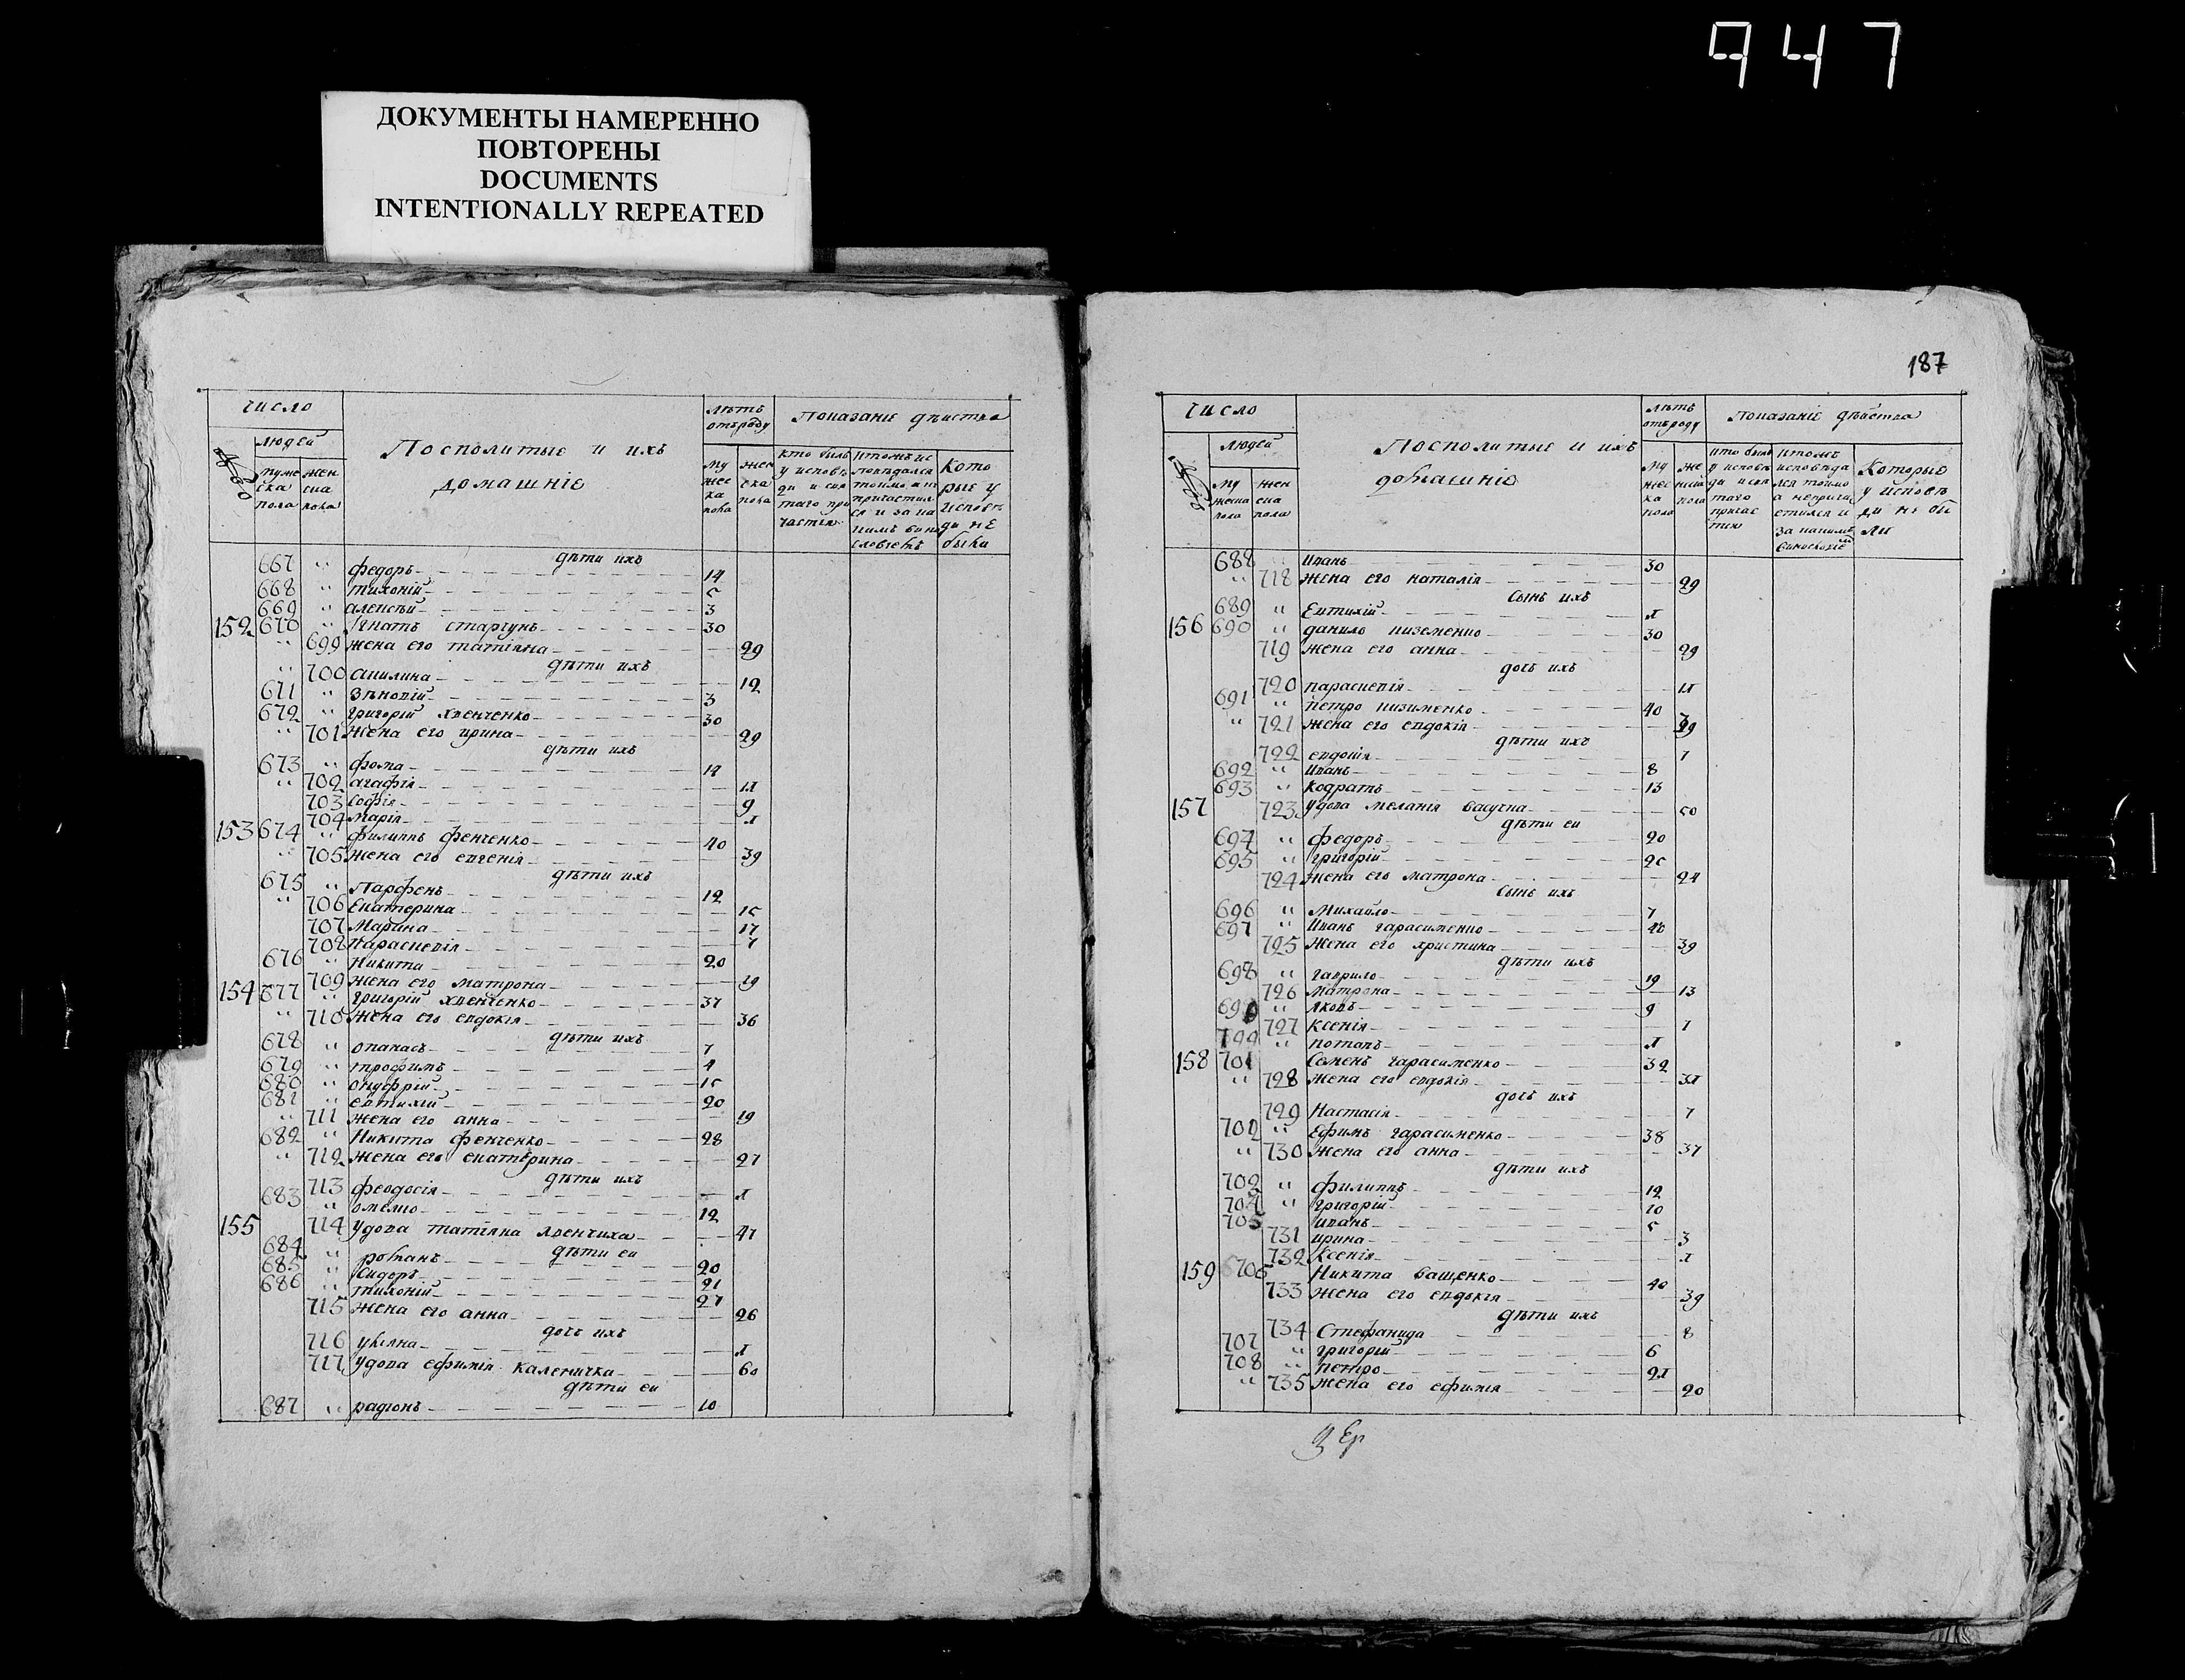 947
ДОКУМЕНТЫ НАМЕРЕННО
ПОВТОРЕНЫ
DOCUMENTS
INTENTIONALLY REPEATED
число
людей
мужеска пола
женска пола
Посполитые и ихъ
домашнїе
лѣтъ отъ роду
мужеска пола
женска пола
показанїе дѣиства
которые у исповѣди не были
дѣти ихъ
667 " федоръ 14
668 " тихонїй 5
669 " алексѣй 3
152 670 " Игнатъ старчунъ 30
" 699 жена его татїяна 29
дѣти ихъ
" 700 акилина 12
671 " Зѣновїй 3
672 " григорїй хвенченко 30
" 701 жена его ирина 29
дѣти ихъ
673 " фома 14
" 702 агафїя 11
703 Софїя 9
704 Марїя
153 674 " филиппъ фенченко 40
" 705 жена его евгенїя 39
дѣти ихъ
675 " Парфенъ 12
" 706 Екатерина 15
707 Марина 17
708 Параскевїя 7
676 " Никита 20
709 жена его матрона 19
154 677 " григорїй хвенченко 37
" 710 жена его евдокїя 36
дѣти ихъ
678 " опанасъ 7
679 " трофимъ 4
680 " онуфрїй 15
681 " евтихїй 20
" 711 жена его анна 19
682 " Никита фенченко 28
" 712 жена его екатерина 27
дѣти ихъ
713 феодосїя
683 " омелко 12
155 714 удова татїяна хвенчиха 47
дѣти еи
684 " романъ 20
685 " Сидоръ 21
686 " тихонїй 27
715 жена его анна 26
дочъ ихъ
716 улїяна
717 удова ефимїя каленичка 60
дѣти еи
687 " радїонъ 10
187
число
людей
мужеска пола
женска пола
Посполитые и ихъ
домашнїе
лѣтъ отъ роду
мужеска пола
женска пола
показанїе дѣиства
Которые у исповѣди не были
688 Иванъ 30
" 718 жена его наталїя 29
Сынъ ихъ
689 " Евтихїй
156 690 " данило низеменко 30
719 жена его анна 29
дочъ ихъ
720 параскевїя 11
691 " петро низименко 40
" 721 жена его евдокїя 39
дѣти ихъ
722 евдокїя 7
692 " Иванъ 8
693 " Кодратъ 13
157 723 удова меланїя васучка 50
дѣти еи
694 " федоръ 20
695 " григорїй 25
724 жена его матрона 24
Сынъ ихъ
696 " Михайло 7
697 " Иванъ гарасименко 40
725 жена его христина 39
дѣти ихъ
698 " гаврило 19
726 Матрона 13
699 Яковъ 9
727 Ксенїя 7
" потапъ
158 701 Семенъ гарасименко 32
" 728 жена его евдокїя 31
дочъ ихъ
729 Настасїя 7
702 " Ефимъ гарасименко 38
" 730 жена его анна 37
дѣти ихъ
" филиппъ 12
704 " григорїй 10
705 Иванъ 5
731 ирина 3
732 Ксенїя
159 706 Никита ващенко 40
733 жена его евдокїя 39
дѣти ихъ
734 Стефанида 8
707 " григорїй 6
708 " петро 21
" 735 жена его ефимїя 20